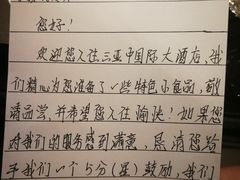 您好！
欢迎您入住三亚中国际大酒店，我
们精心为您准备了一些特色小食品，敬
请品尝，并希望您入住愉快！如果您
对我们的服务感到满意，恳请您给
予我们一个5分（星）鼓励，我们